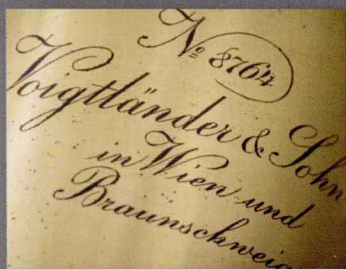 № 8764
Voigtländer & Sohn
in Wien und
Braunschweig